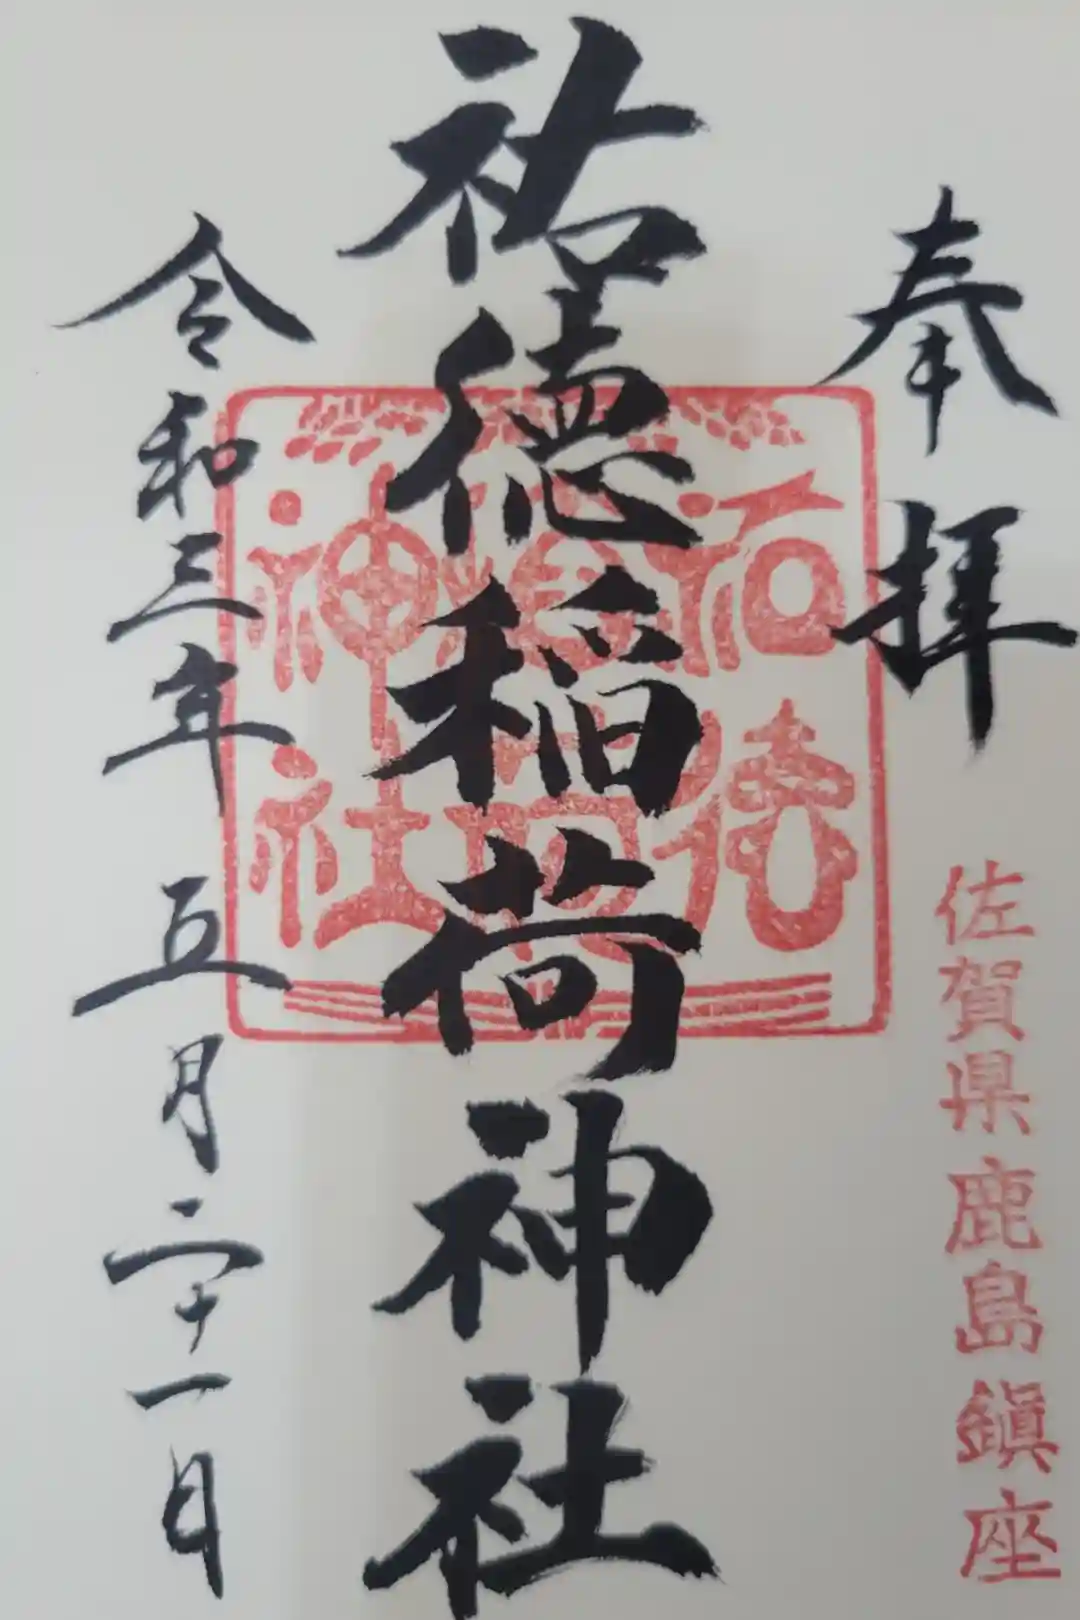 奉拝
佐賀県鹿島鎮座
祐徳稲荷神社
令和三年五月二十一日